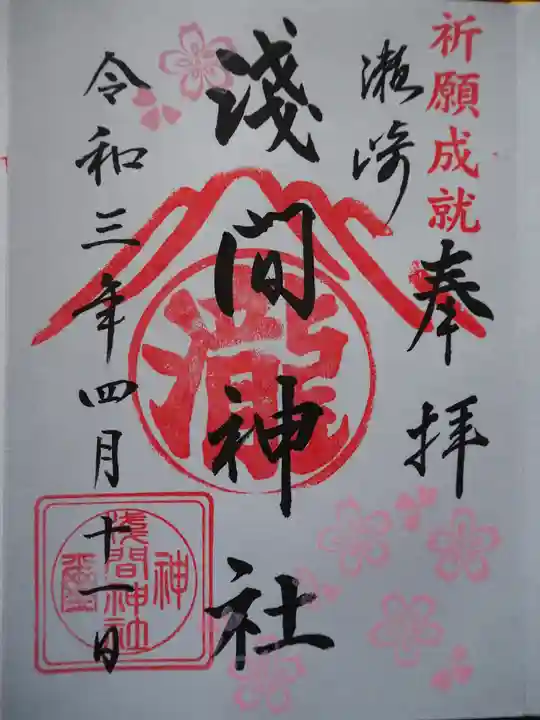 祈願成就
奉拝
瀬崎
淺間神社
瀧
令和三年四月十一日
浅間神社
神璽